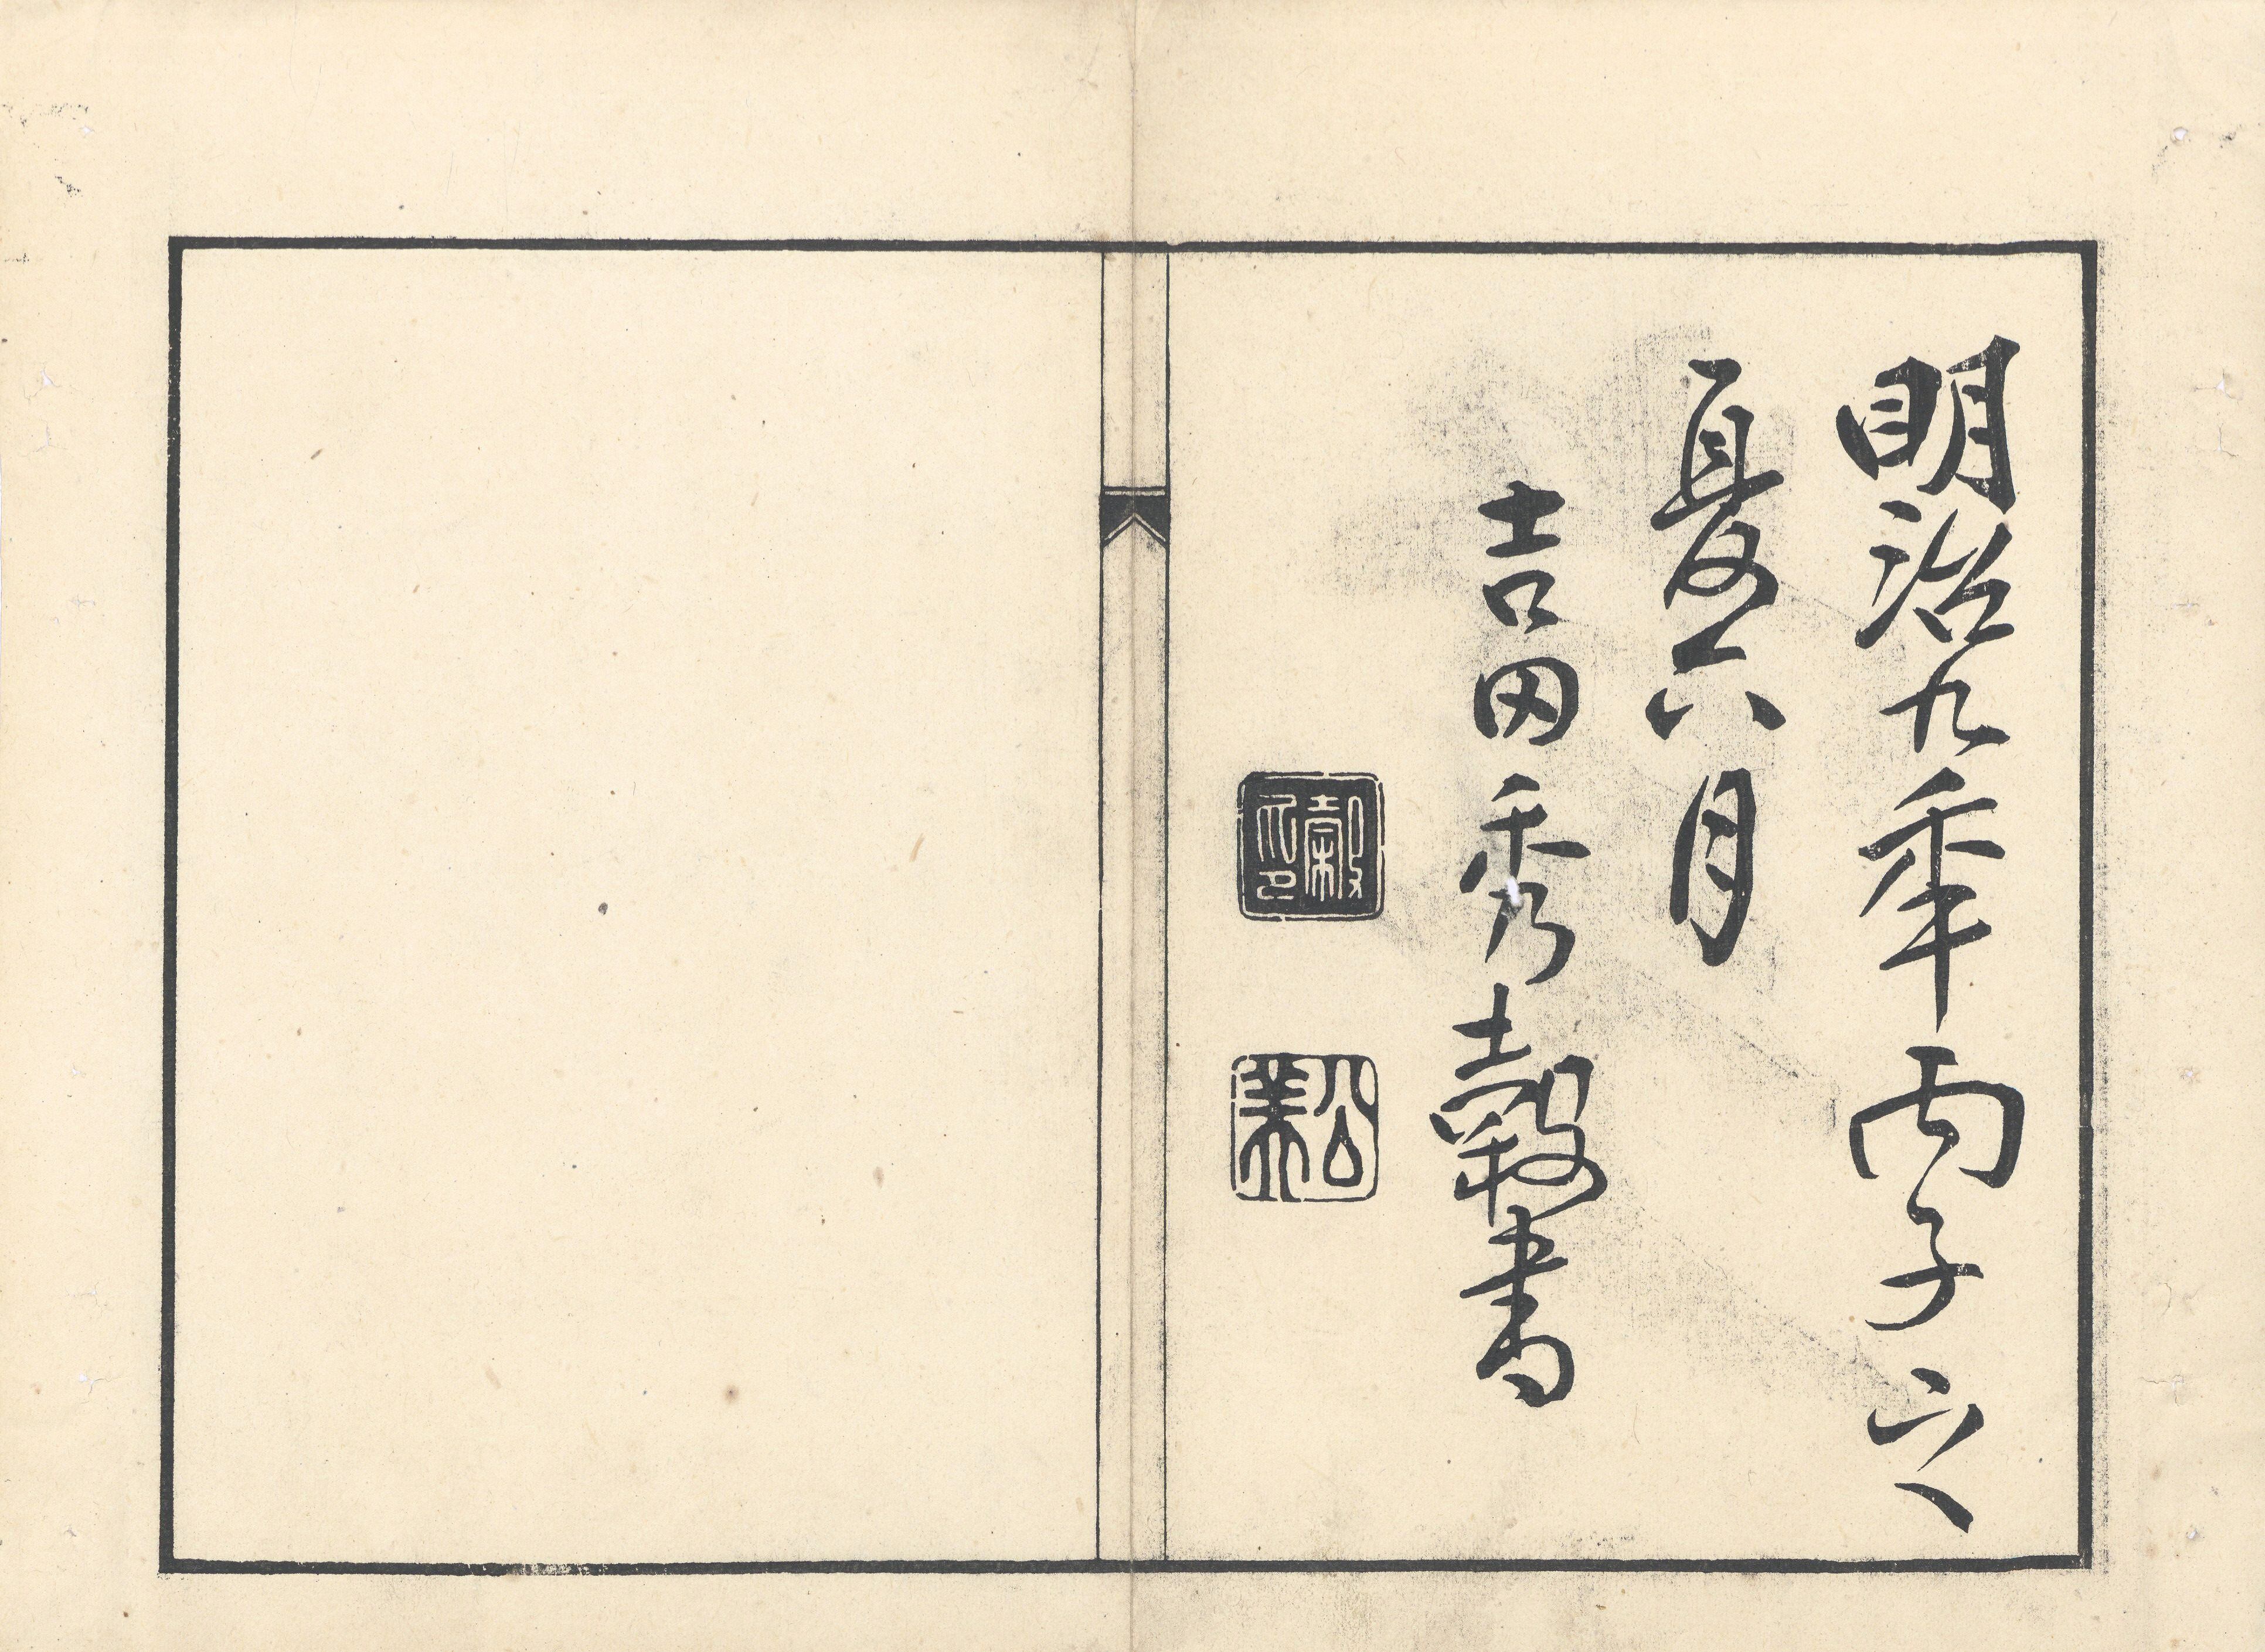 明治九秊丙子之
夏六月
吉田秀穀書
穀印